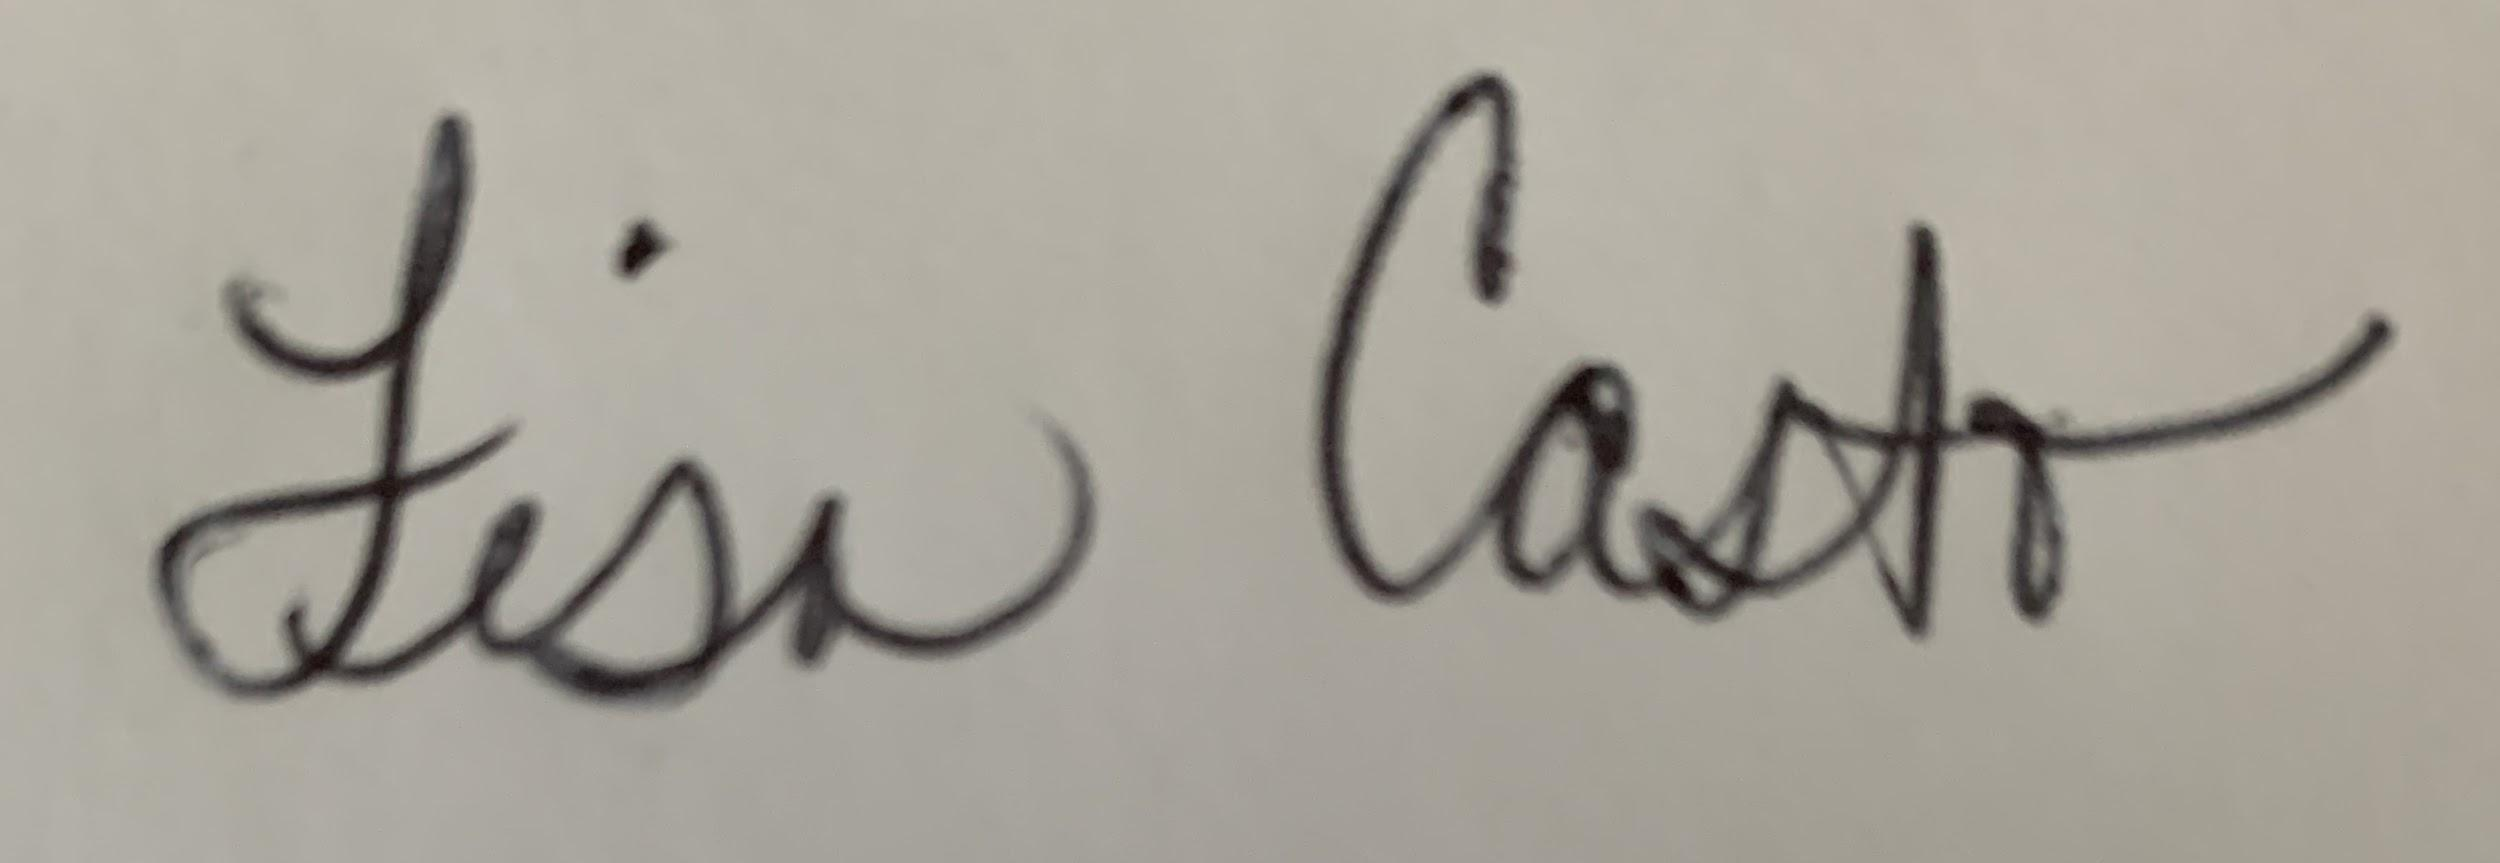 Lisa Casto